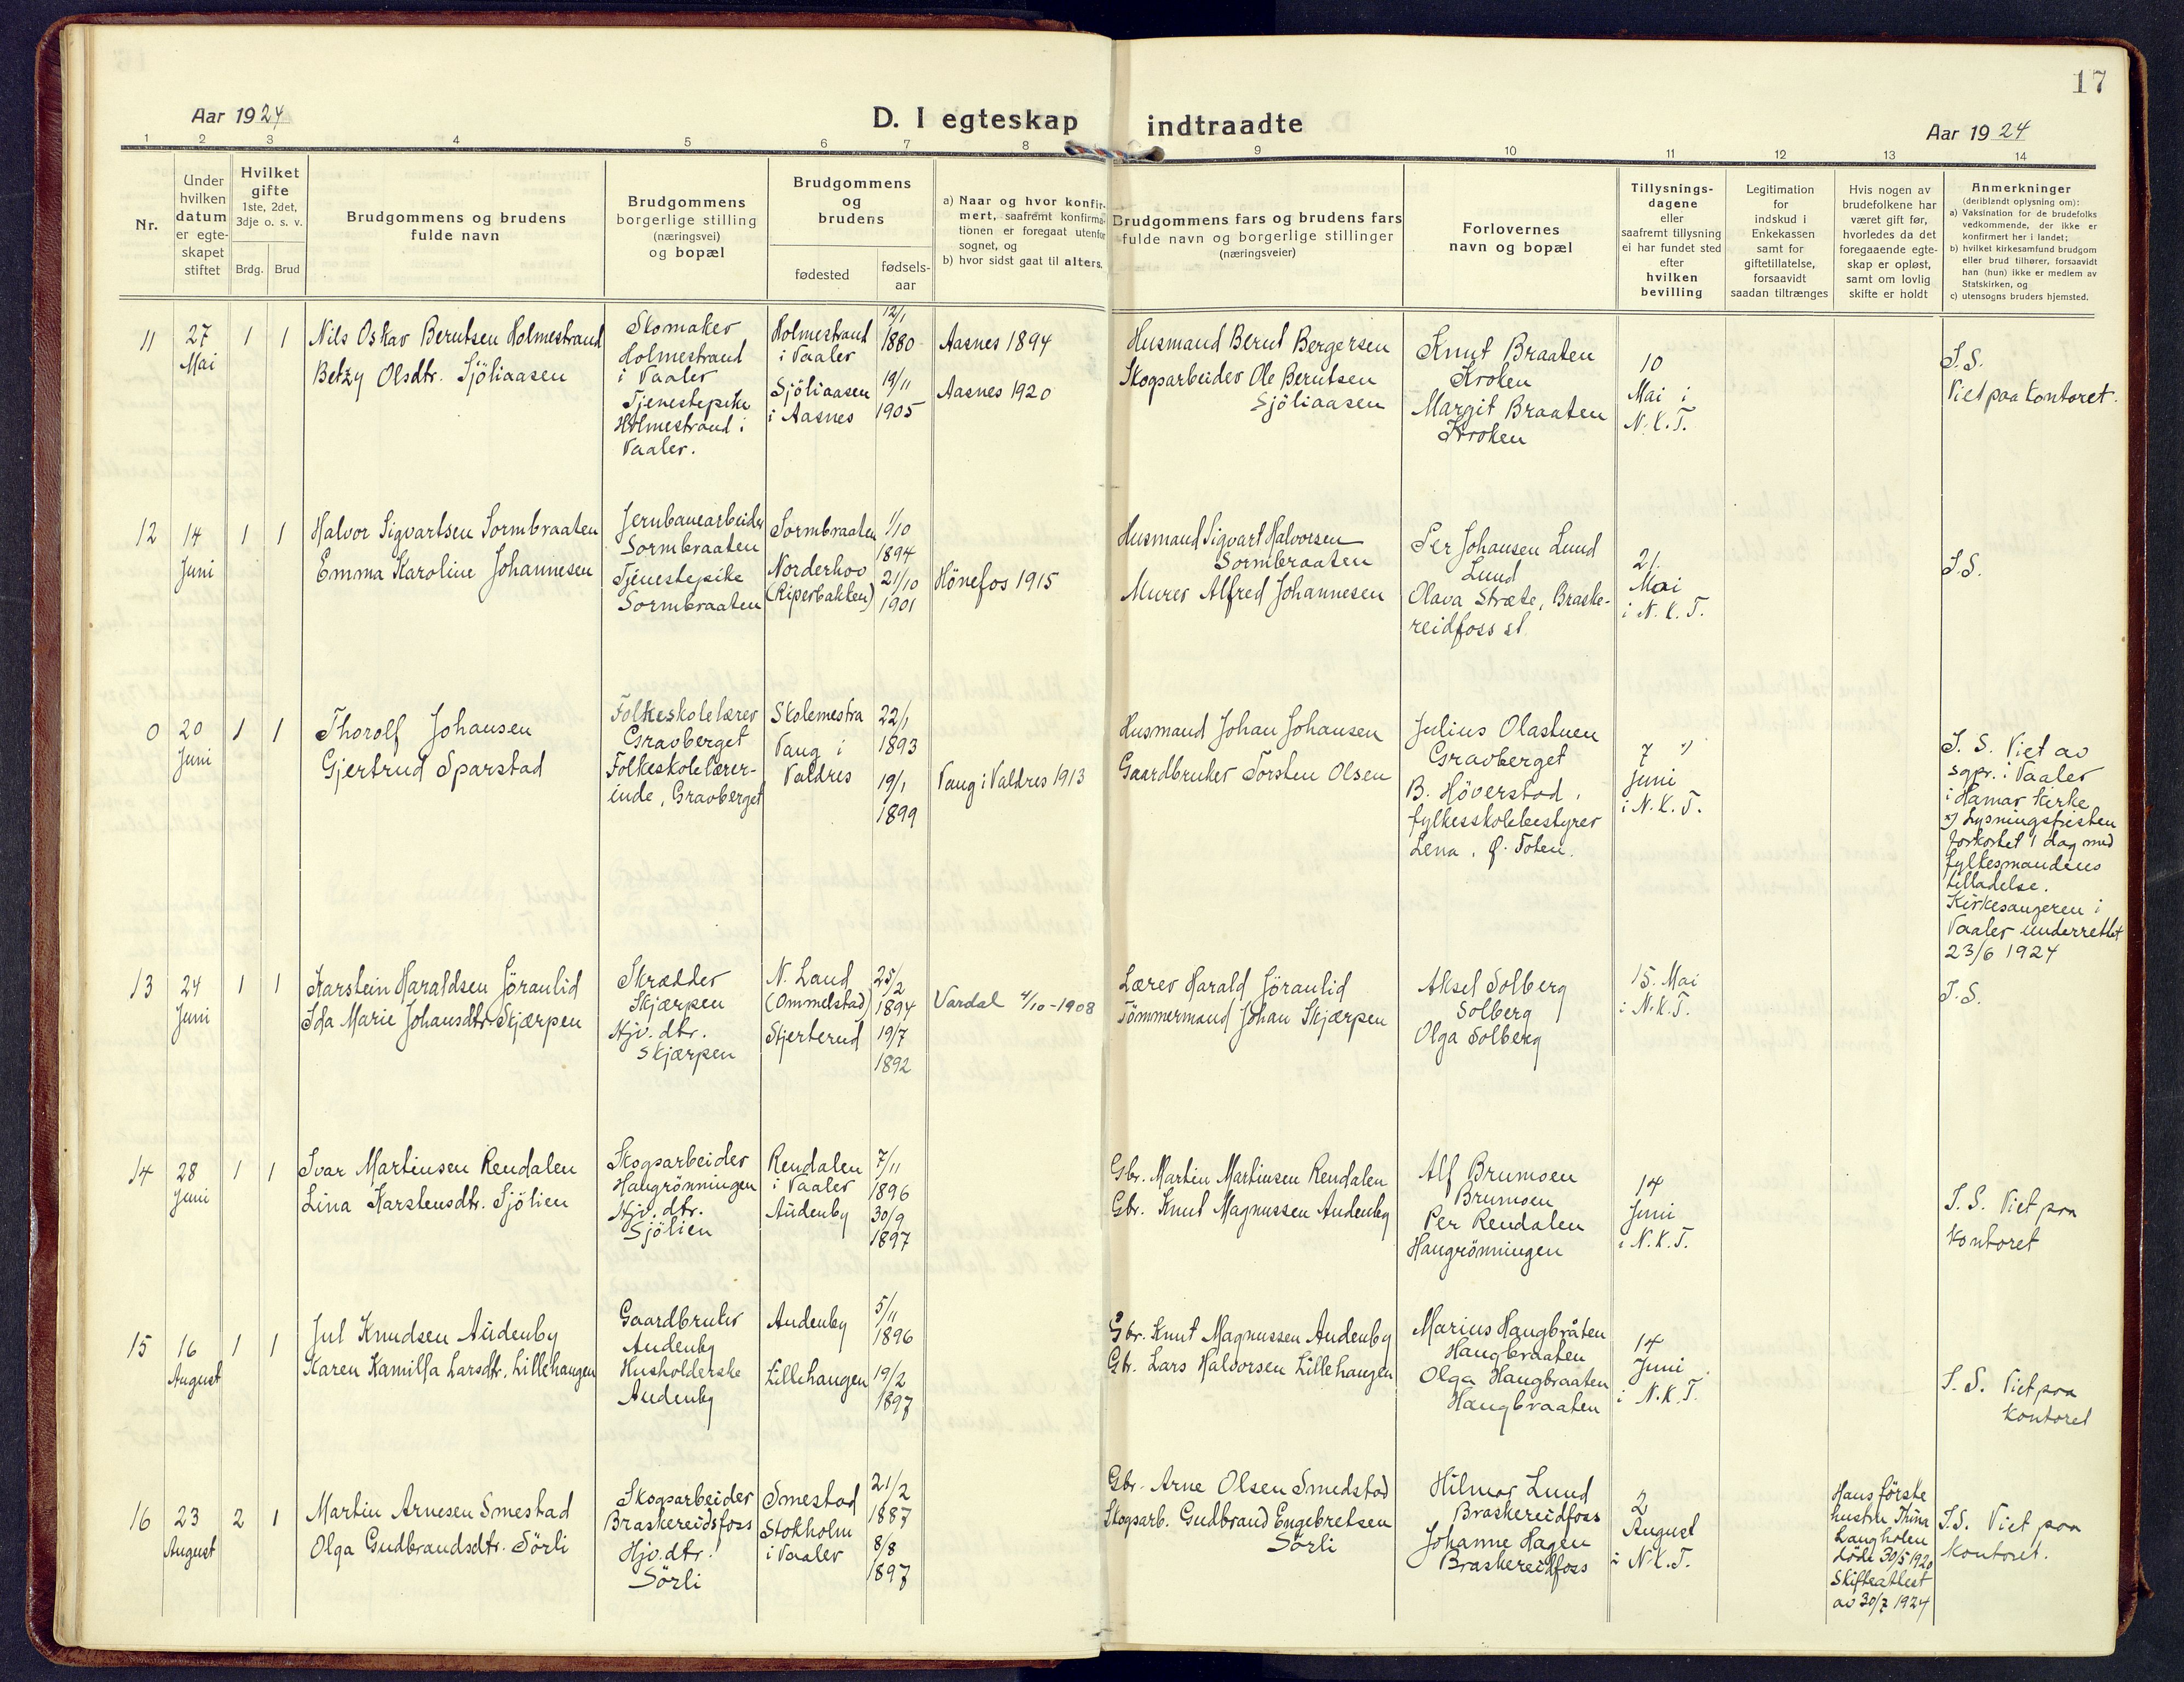 17
Aar 1924
D. I egteskap indtraadte
Aar 1924
1 2 3 4 5 6 7 8 9 10 11 12 13 14
Nr.
Under
hvilken
datum
er egte-
skapet
stiftet
Hvilket
gifte
1ste, 2det,
3dje o. s. v.
Brdg. Brud
Brudgommens og brudens
fulde navn
Brudgommens
borgerlige stilling
(næringsvei)
og bopæl
Brudgommens
og
brudens
fødested
fødsels-
aar
a) Naar og hvor konfir-
mert, saafremt konfirma-
tionen er foregaat utenfor
sognet, og
b) hvor sidst gaat til alters.
Brudgommens fars og brudens fars
fulde navn og borgerlige stillinger
(næringsveier)
Forlovernes
navn og bopæl
Tillysnings-
dagene
eller
saafremt tillysning
ei har fundet sted
efter
hvilken
bevilling
Legitimation
for
indskud i
Enkekassen
samt for
giftetillatelse,
forsaavidt
saadan tiltrænges
Hvis nogen av
brudefolkene har
været gift før,
hvorledes da det
foregaaende egte-
skap er opløst,
samt om lovlig
skifte er holdt
Anmerkninger
(deriblandt oplysning om):
a) Vaksination for de brudefolks
vedkommende, der ikke er
konfirmert her i landet;
b) hvilket kirkesamfund brudgom
eller brud tilhører, forsaavidt
han (hun) ikke er medlem av
Statskirken, og
c) utensogns bruders hjemsted.
11
27
Mai
1 1
Nils Oskar Berntsen Holmestrand
Betzy Olsdtr. Sjöliaasen
Skomaker
Holmestrand
i Vaaler
Tjenestepike
Holmestrand i
Vaaler.
Holmestrand
i Vaaler
Sjöliaasen
i Aasnes
12/1
1880
19/11
1905
Aasnes 1894
Aasnes 1920
Husmand Bernt Bergersen
Skogsarbeider Ole Berntsen
Sjöliaasen
Knut Braaten
Kroken
Margit Braaten
Kroken
10
Mai i
N.K.T.
S.S.
Viet paa kontoret.
12
14
Juni
1 1
Halvor Sigvartsen Sormbraaten
Emma Karoline Johannesen
Jernbanearbeider
Sormbraaten
Tjenestepike
Sormbraaten
Sormbraaten
Norderhov
(Riperbakken)
1/10
1894
21/10
1901
Hönefos 1915
Husmand Sigvart Halvorsen
Sormbraaten
Murer Alfred Johannesen
Per Johansen Lund
Lund
Olava Stræte, Braske-
reidfoss st.
21.
Mai
i N.K.T.
S.S.
0
20
Juni
1 1
Thorolf Johansen
Gjertrud Sparstad
Folkeskolelærer
Gravberget
Folkeskolelærer-
inde, Gravberget
Skolemestra
Vang i
Valdres
22/1
1893
19/1
1899
Vang i Valdres 1913
Husmand Johan Johansen
Gaardbruker Torsten Olsen
Julius Olastuen
Gravberget
B. Höverstad,
fylkesskolebestyrer
Lena, Ö. Toten.
7 x)
Juni
i N.K.T.
S. S. Viet av
sgpr. i Vaaler
i Hamar kirke
x) Lysningsfristen
forkortet 1 dag med
fylkesmandens
tilladelse.
Kirkesangeren i
Vaaler underrettet
23/6 1924
13
24
Juni
1 1
Karstein Haraldsen Jöranlid
Ida Marie Johansdtr. Skjærpen
Skrædder
Skjærpen
Hjv. dtr.
Skjærpen
N. Land
(Ommelstad)
Stjerterud
25/2
1894
19/7
1892
Vardal 4/10-1908
Lærer Harald Jöranlid
Tömmermand Johan Skjærpen
Aksel Solberg
Solberg
Olga Solberg
15. Mai
i N.K.T.
S.S.
14
28
Juni
1 1
Ivar Martinsen Rendalen
Lina Karstensdtr. Sjölien
Skogsarbeider
Haugrönningen
Hjv. dtr.
Sjölien
Rendalen
i Vaaler
Audenby
7/11
1896
30/9
1897
Gbr. Martin Martinsen Rendalen
Gbr. Knut Magnussen Audenby
Alf Brumoen
Brumoen
Per Rendalen
Haugrönningen
14
Juni
i N.K.T.
S.S. Viet paa
kontoret
15
16
August
1 1
Jul Knudsen Audenby
Karen Kamilla Larsdtr. Lillehaugen
Gaardbruker
Audenby
Husholderske
Audenby
Audenby
Lillehaugen
5/11
1896
19/2
1897
Gbr. Knut Magnussen Audenby
Gbr. Lars Halvorsen Lillehaugen
Marius Haugbråten
Haugbraaten
Olga Haugbraaten
Haugbraaten
14
Juni
i N.K.T.
S.S. Viet paa
kontoret
16
23
August
2 1
Martin Arnesen Smestad
Olga Gudbrandsdtr. Sörli
Skogsarbeider
Braskereidsfoss
Hjv. dtr.
Sörli
Smestad
Stokholm
i Vaaler
21/2
1887
8/8
1897
Gbr. Arne Olsen Smedstad
Skogsarb. Gudbrand Engebretsen
Sörli
Hilmar Lund
Braskereidfoss
Johanne Hagen
Braskereidfoss
2
August
i N.K.T.
Hans förste
hustru Thina
Langholen
döde 30/5 1920
Skifteattest
av 30/7 1924
S.S. Viet paa
kontoret.